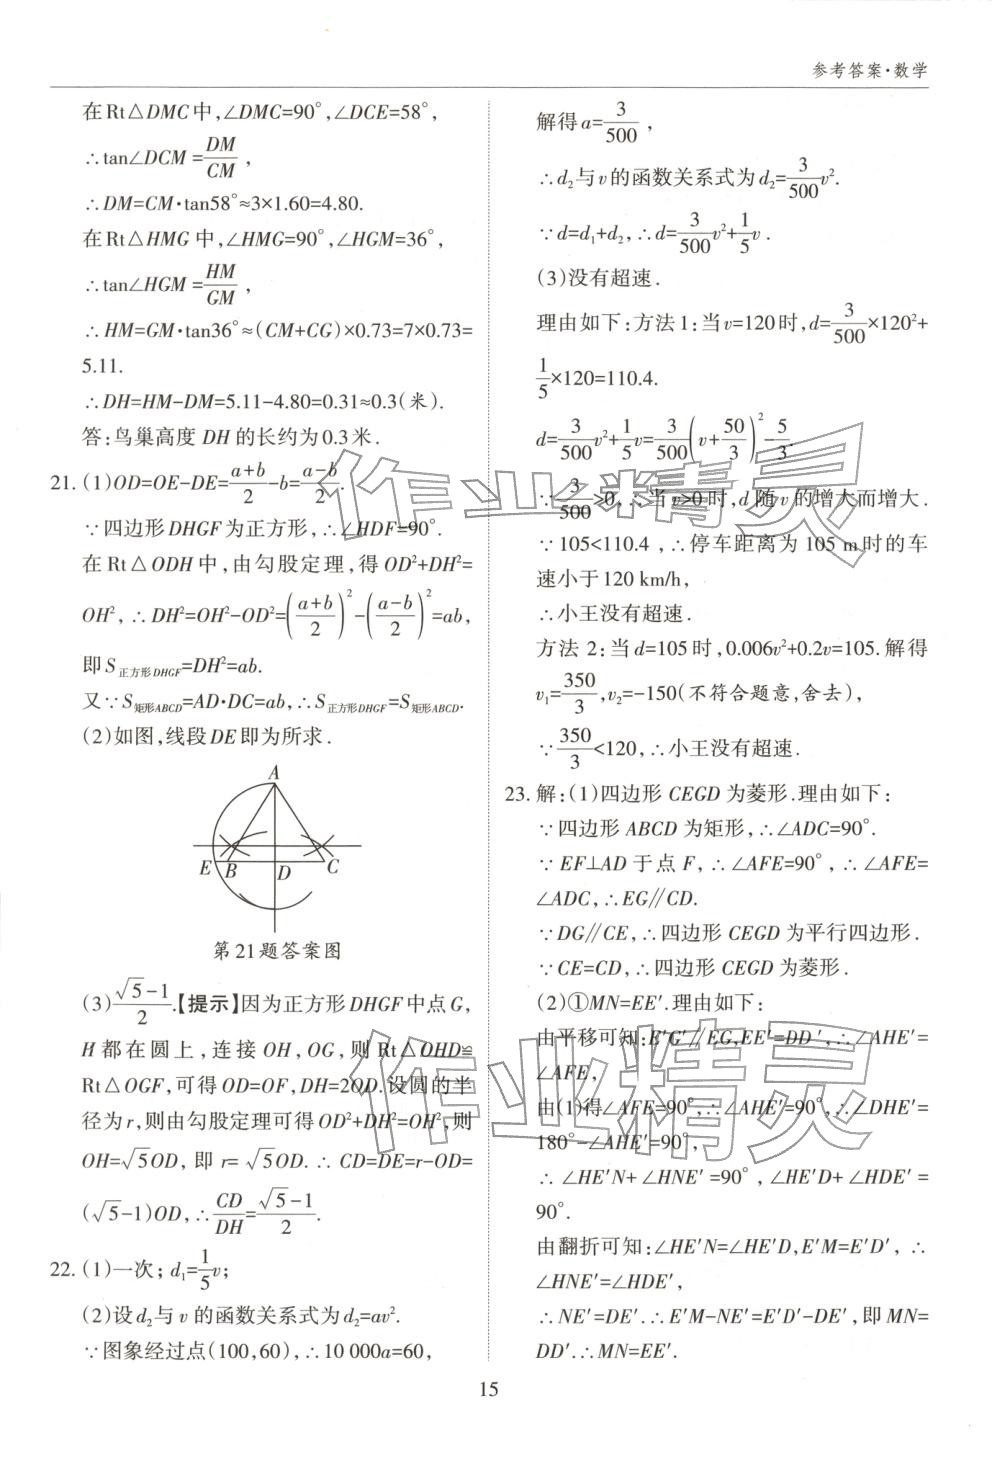 参考答案·数学
在Rt△DMC中,∠DMC=90°,∠DCE=58°,
∴tan∠DCM=DM/CM,
∴DM=CM·tan58°≈3×1.60=4.80.
在Rt△HMG中,∠HMG=90°,∠HGM=36°,
∴tan∠HGM=HM/GM,
∴HM=GM·tan36°≈(CM+CG)×0.73=7×0.73=
5.11.
∴DH=HM-DM=5.11-4.80=0.31≈0.3(米).
答:鸟巢高度DH的长约为0.3米.
21.(1)OD=OE-DE=(a+b)/2-b=(a-b)/2.
∵四边形DHGF为正方形,∴∠HDF=90°.
在Rt△ODH中,由勾股定理,得OD²+DH²=
OH²,∴DH²=OH²-OD²=((a+b)/2)²-((a-b)/2)²=ab,
即S正方形DHGF=DH²=ab.
又∵S矩形ABCD=AD·DC=ab,∴S正方形DHGF=S矩形ABCD.
(2)如图,线段DE即为所求.
A
E B D C
第21题答案图
(3)(√5-1)/2.【提示】因为正方形DHGF中点G,
H都在圆上,连接OH,OG,则Rt△OHD≌
Rt△OGF,可得OD=OF,DH=2OD.设圆的半
径为r,则由勾股定理可得OD²+DH²=OH²,则
OH=√5OD,即r=√5OD.∴CD=DE=r-OD=
(√5-1)OD,∴CD/DH=(√5-1)/2.
22.(1)一次;d₁=1/5v;
(2)设d₂与v的函数关系式为d₂=av².
∵图象经过点(100,60),∴10 000a=60,
解得a=3/500,
∴d₂与v的函数关系式为d₂=3/500v².
∵d=d₁+d₂,∴d=3/500v²+1/5v.
(3)没有超速.
理由如下:方法1:当v=120时,d=3/500×120²+
1/5×120=110.4.
d=3/500v²+1/5v=3/500(v+50/3)²-5/3.
∵3/500>0,∴当v>0时,d随v的增大而增大.
∵105<110.4,∴停车距离为105 m时的车
速小于120 km/h,
∴小王没有超速.
方法2:当d=105时,0.006v²+0.2v=105.解得
v₁=350/3,v₂=-150(不符合题意,舍去),
∵350/3<120,∴小王没有超速.
23.解:(1)四边形CEGD为菱形.理由如下:
∵四边形ABCD为矩形,∴∠ADC=90°.
∵EF⊥AD于点F,∴∠AFE=90°,∴∠AFE=
∠ADC,∴EG∥CD.
∵DG∥CE,∴四边形CEGD为平行四边形.
∵CE=CD,∴四边形CEGD为菱形.
(2)①MN=EE′.理由如下:
由平移可知:E′G′∥EG,EE′=DD′,∴∠AHE′=
∠AFE,
由(1)得∠AFE=90°,∴∠AHE′=90°,∴∠DHE′=
180°-∠AHE′=90°,
∴∠HE′N+∠HNE′=90°,∠HE′D+∠HDE′=
90°.
由翻折可知:∠HE′N=∠HE′D,E′M=E′D′,∴
∠HNE′=∠HDE′,
∴NE′=DE′.∴E′M-NE′=E′D′-DE′,即MN=
DD′.∴MN=EE′.
15
作业精灵
作业精灵